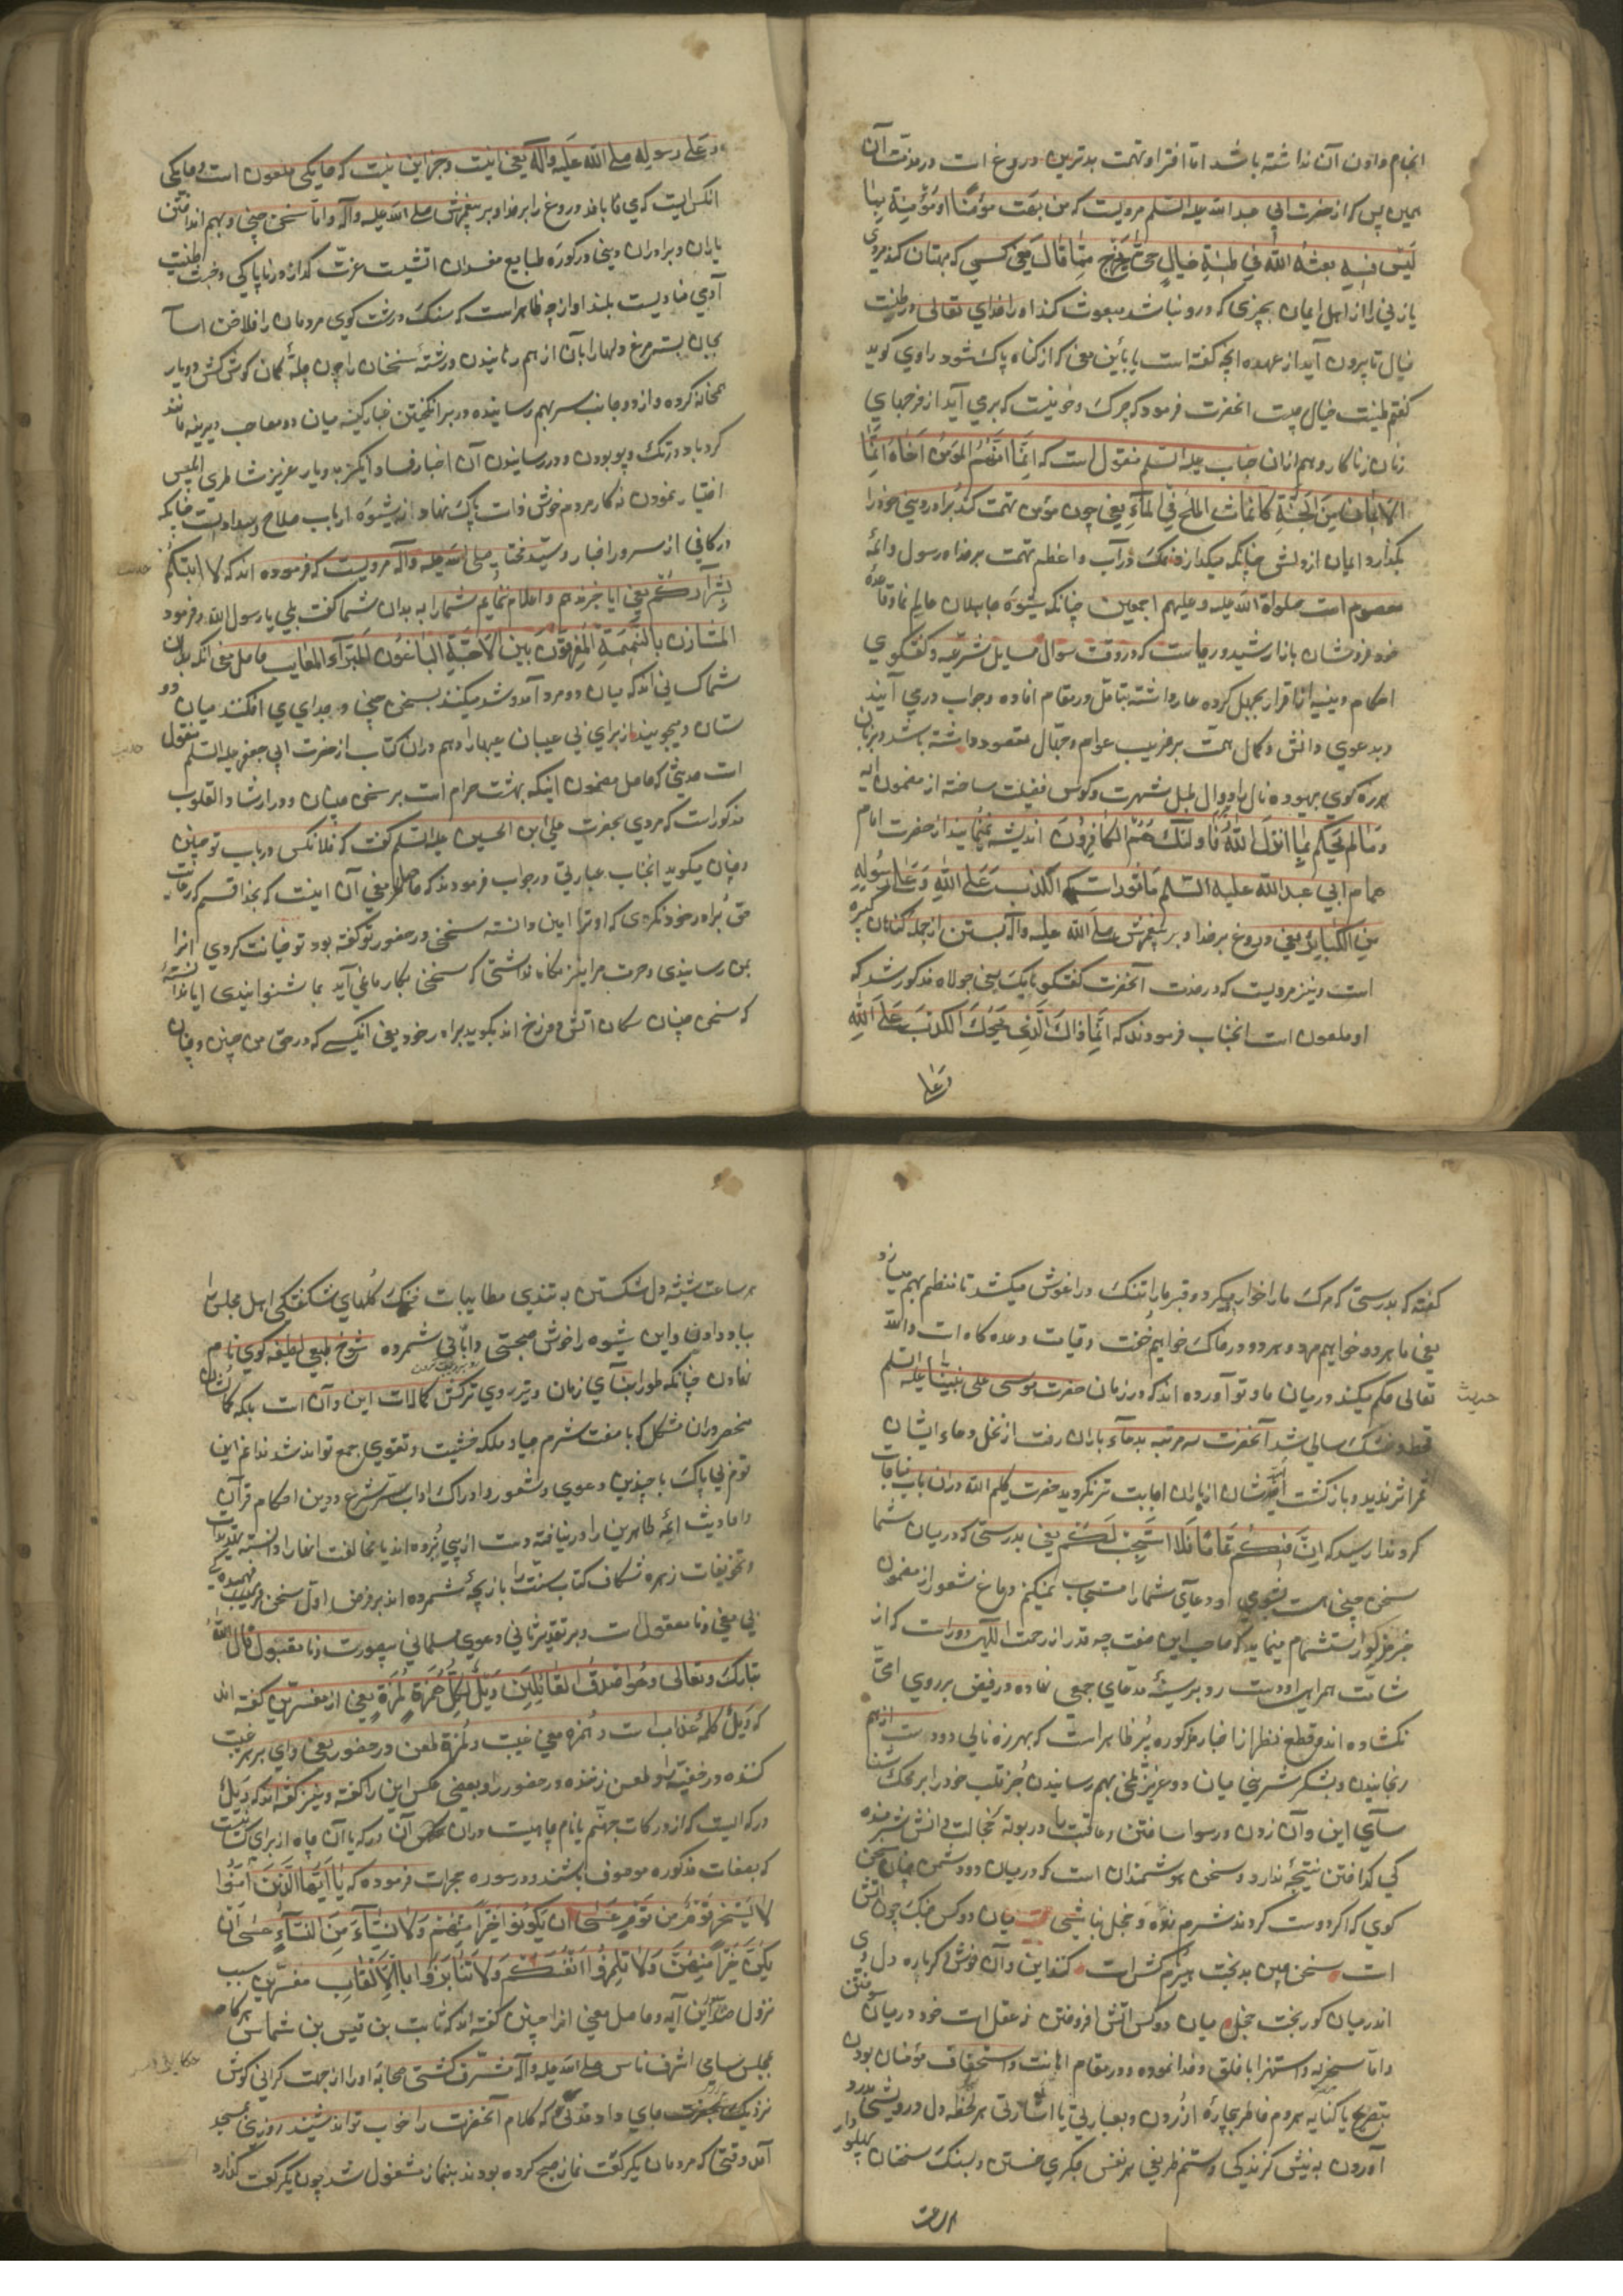 انجام دادن آن نداشته باشد اما افترا و تهمت بدترین دروغ است و در مذمت آن
همین بس که از حضرت ابی عبد الله علیه السلم مرویست که من بهت مؤمنا او مؤمنة بما
لیس فیه بعثه الله فی طینة خبال حتی یخرج مما قال یعنی کسی که بهتان کند مردی
یا زنی را از اهل ایمان بچیزی که درو نباشد مبعوث کند او را خدای تعالی در طینت
خبال تا بیرون آید از عهده آنچه گفته است یا باین معنی که از کناه پاک شود راوی کوید
کفتم طینت خبال چیست انحضرت فرمود که چرک و خونیست که بری آید از فرجهای
زنان زناکار و هم از ان جناب علیه السلم منقول است که اذا اتهم المؤمن اخاه انماث
الایمان من قلبه کما یماث الملح فی الماء یعنی چون مؤمن تهمت کند برادر دینی خود را
بکدازد ایمان از دلش چنانکه میکدازد نمک در آب و اعظم تهمت بر خدا و رسول و ائمهٔ
معصوم است صلواة الله علیه و علیهم اجمعین چنانکه شیوه جاهلان عالم نما و قاعدهٔ
خود فروشان بازار شید و ریاست که در وقت سوال مسایل شرعیه و کفتکوی
احکام دینیه از اقرار بجهل کرده عار داشته بتامل در مقام افاده و جواب دری آیند
و بدعوی دانش و کمال همت بر فریب عوام و جهال مقصود داشته باشد و بزبان
هرزه کوی بیهوده نال را دوال طبل شهرت و کوس فضیلت ساخته از مضمون آیه
و من لم یحکم بما انزل الله فاولئک هم الکافرون اندیشه نمینمایند از حضرت امام
همام ابی عبد الله علیه السلم ماثورات که الکذب علی الله و علی رسوله
من الکبایر یعنی دروغ بر خدا و بر پیغمبرش صلی الله علیه و آله بستن از جمله کناهان کبیره
است و نیز مرویست که در خدمت آنحضرت کفتکو بایک یعنی جولاه مذکور شد که
او ملعون است انجناب فرمودند که انما ذاک الذی یحوک الکذب علی الله
و علی
و علی رسوله صلی الله علیه و آله یعنی اینست و جز این نیست که حایکی ملعون است حایکی
انکس است کوی که بافد دروغ را بر خدا و بر پیغمبرش صلی الله علیه و آله و اما سخن چینی و بهم انداختن
یاران و برادران دینی در کوره طبایع مفسدان اتشیست عزت کداز و در ناپاکی و خبث طینت
آدمی منادیست بلند اواز چه ظاهر است که سنک درشت کوی مردمان را فلاخن آسا
بجان بستن مرغ دلها را بان از هم رمانیدن و رشتهٔ سخنان را چون چلهٔ کمان کوش کش دو یار
همخانه کرده و از دو جانب سر بهم رسانیده در بر انکیختن غبار کینه میان دو مصاحب دیرینه مانند
کرد باد در تک و پو بودن و در رسانیدن آن اخبار فساد انکیز بدو یار عزیز شاطری ابلیس
اختیار نمودن نه کار مردم خوش ذات پاک نهاد و از شیوه ارباب صلاح و سداد است چنانکه
در کافی از سرور اخیار و سید مختار صلی الله علیه و آله مرویست که فرموده اند که لا انبئکم
بشرارکم یعنی ایا خبر ندهم و اعلام ننمایم شما را به بدان شما کفت بلی یا رسول الله فرمود
المشاؤن بالنمیمة المفرقون بین الاحبة الباغون للبراء المعایب حاصل معنی انکه بدان
شما کسانی اند که میان دو مرد آمد و شد میکنند بسخن چینی و جدایی می افکنند میان دو
ستان و میجویند از برای بی عیبان عیبها را و هم در ان کتاب از حضرت ابی جعفر علیه السلم منقول
است حدیثی که حاصل مضمون اینکه بهشت حرام است بر سخن چینان و در ارشاد القلوب
مذکور است که مردی بحضرت علی ابن الحسین علیه السلم کفت که فلانکس در باب تو چنین
و چنان میکوید انجناب عبارتی در جواب فرمودند که حاصل معنی آن اینست که بخدا قسم که رعایت
حق برادر خود نکردی که او ترا امین دانسته سخنی در حضور تو کفته بود تو خیانت کردی انرا
بمن رسانیدی و حرمت مرا نیز نکاه نداشتی که سخنی بکار ما نمی آید بما شنوانیدی ایا ندانستهٔ
که سخن چینان سکان اتش دوزخ اند بکوید برادر خود یعنی انکسی که در حق من چنین و چنان
کفته که بدرستی که مرک ما را خواهد میکرد و قبر ما را تنک در اغوش میکشد تا ننظم بهم میازد
یعنی ما هر دو خواهیم مرد و هر دو در خاک خواهیم خفت و قیامت وعده کاه است و الله
تعالی حکم میکند در میان ما و تو آورده اند که در زمان حضرت موسی علی نبینا و علیه السلم
حدیث
قحط و خشک سالی شد آنحضرت سه مرتبه بدعآء باران رفت از نخل دعاء ایشان
ثمر اثر ندید و باز کشت امیدشان از باران اجابت تر نکردید حضرت کلیم الله در ان باب مناجات
کرد ندا رسید که ان فیکم نماما فلا استجیب لکم یعنی بدرستی که در میان شما
سخن چینی هست بشومی او دعای شما را مستجاب نمیکنم دماغ شعور از مضمون
خبر مذکور استشمام مینماید که صاحب این صفت چه قدر از رحمت اللهی دور است که از
شامت همراهی او دست رد بر سینهٔ مدعای جمعی نهاده در فیض بر روی امیّ
نکشاده اند و قطع نظر از اخبار مذکوره پر ظاهر است که بهرزه نالی دو دوست از هم
رنجانیدن و بشکر شیرینی میان دو عزیز تلخی بهم رسانیدن جز قلب خود را بر محک شنا
سآیی این و آن زدن و رسوا ساختن و عاقبت ما در بوتهٔ خجالت و اتش شرمنده
کی کداختن نتیجه ندارد و سخن هوشمندان است که در میان دو دشمن چنان سخن
کوی که اکر دوست کردند شرم زده و خجل نباشی میان دو کس جنک چون اتش
است سخن چین بدبخت هیزم کش است کنند این و آن خوش دکر باره دل وی
اندر میان کور بخت خجل میان دو کس اتش افروختن نه عقل است خود در میان سوختن
و اما سخریه و استهزا با خلق خدا نموده و در مقام اهانت و استخفاف مؤمنان بودن
بتصریح یا کنایه مردم خاطر بیچارهٔ آزردن و بعبارتی یا اشارتی هر لحظه دل درویشی بدرد
آوردن به نیش کزندکی و ستم ظریفی هر نفس جکری خستن و بسنک سخنان پهلو دار
هر ساعت شیشه دل شکستن به تندی مطایبات خنک کلهای شکفتکی اهل مجلس را
بباد دادن و این شیوه را خوش صحبتی و انانی شمرده شوخ طبعی لطیفه کوی نام
نهادن چنانکه طور ابنآی زمان و تیر روی ترکش کمالات این و آن است بلکه کمانشان
منحصر در ان مشکل که با صفت شرم و حیا و ملکه خشیت و تقوی جمع تواند شد ندانم این
قوم بی باک با چندین دعوی و شعور و ادراک اداب شرع و دین احکام قرآن
و احادیث ائمهٔ طاهرین را در نیافته دست از پی برده اند یا مخالفت انها را دانسته تهدیدات
و تخویفات زهره شکاف کتاب سنت را بازیچهٔ شمرده اند بر فرض اول سخن فهمیدکی
بی معنی و نا معقول است و بر تقدیر ثانی دعوی مسلمانی بیصورت و نا مقبول قال الله
تبارک و تعالی و هو اصدق القائلین ویل لکل همزة لمزة یعنی از مفسرین کفته اند
که ویل کلمهٔ عذاب است و همزه بمعنی غیبت و لمزه طعن در حضور یعنی وای بر هر غیبت
کننده در خفیه و طعن زننده در حضور را و بعضی عکس این را کفته و نیز کفته اند که ویل
درکه ایست که از درکات جهنم یا نام چاهیست در ان درکه یا آن چاه از برای کسانیست
که بصفات مذکوره موصوف باشند و در سوره حجرات فرموده که یا ایها الذین آمنوا
لا یسخر قوم من قوم عسی ان یکونوا خیرا منهم و لا نساء من النساء عسی ان
یکن خیرا منهن و لا تلمزوا انفسکم و لا تنابزوا بالالقاب مفسرین سبب
نزول این آیه و حاصل معنی انرا چنین کفته اند که ثابت بن قیس بن شماس هرکاه
بمجلس سامی اشرف ناس صلی الله علیه و آله مشرف کشتی صحابه او را از جهت کرانی کوش
نزدیک بحضرت جای دادندی که کلام آنحضرت را خوب تواند شنید روزی بمسجد
آمد وقتی که مردمان یکرکعت نماز صبح کرده بودند بنماز مشغول شد چون یکرکعت کذارد